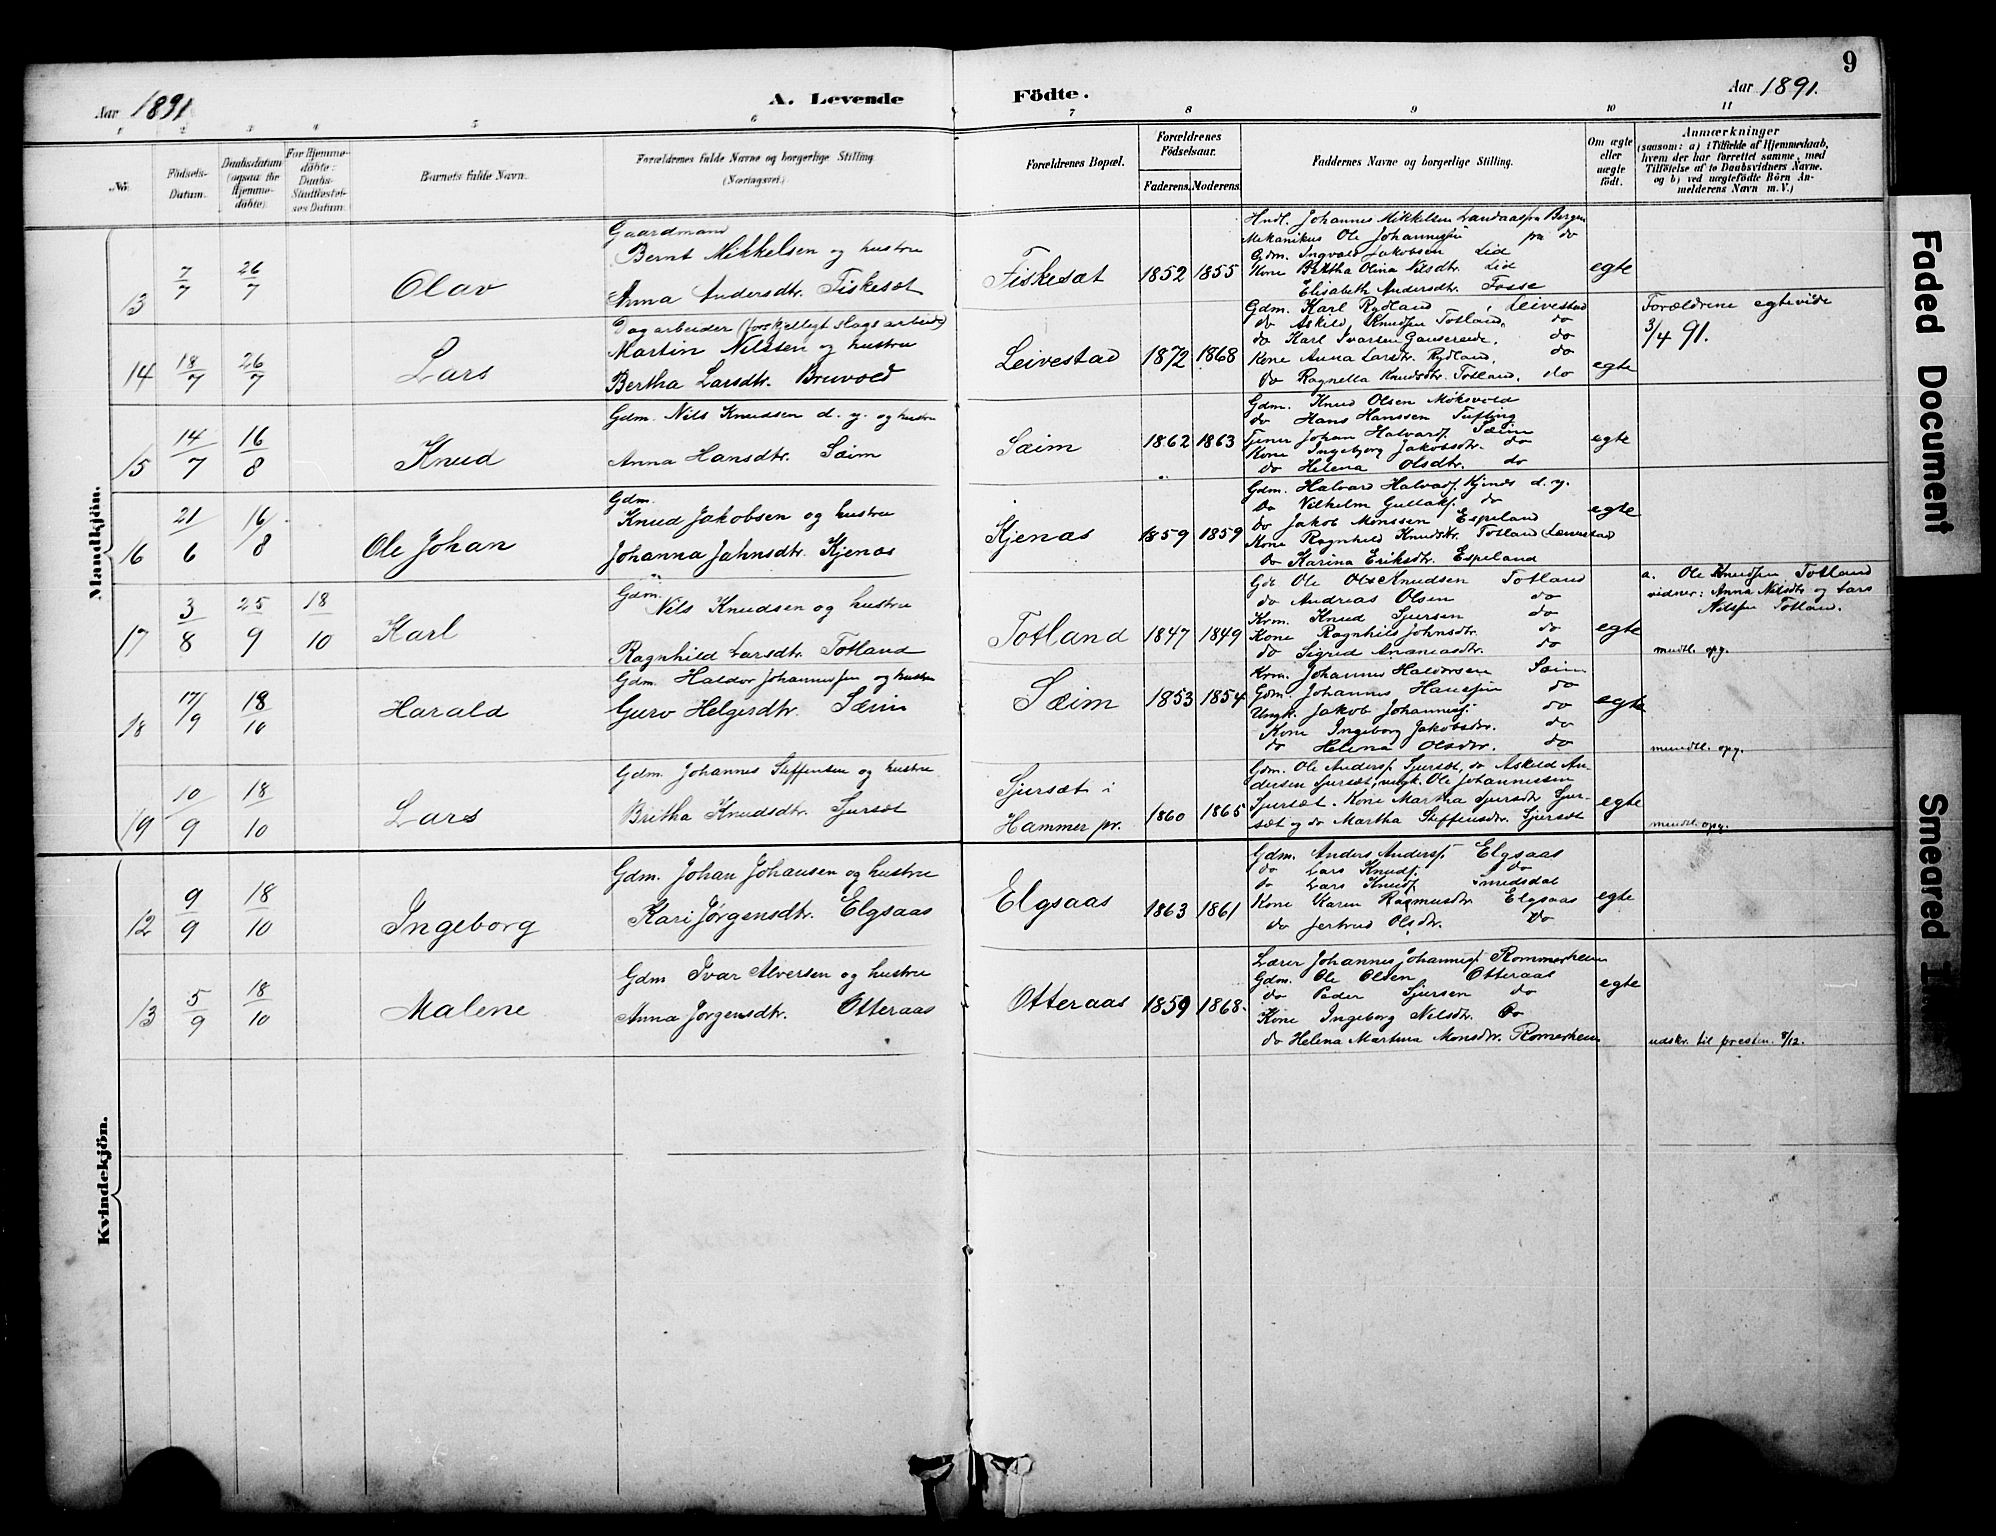 9
Aar 1891
A. Levende Födte.
Aar 1891.
1 2 3 4 5 6 7 8 9 10 11
No.
Födsels-
Datum.
Daabsdatum
(ogsaa for
Hjemme-
döbte).
For Hjemme-
döbte:
Daabs-
Stadfæstel-
ses Datum.
Barnets fulde Navn.
Forældrenes fulde Navne og borgerlige Stilling
(Næringsvei.)
Forældrenes Bopæl.
Forældrenes
Födselsaar.
Faderens. Moderens.
Faddernes Navne og borgerlige Stilling.
Om ægte
eller
uægte
født.
Anmærkninger
(saasom: a) i Tilfælde af Hjemmedaab,
hvem der har forrettet samme, med
Tilføielse af to Daabsvidners Navne.
og b) ved uægtefödte Börn An-
melderens Navn m. V.)
Mandkjön.
13 7/7 26/7 Olav
Gaardmand
Bernt Mikkelsen og hustru
Anna Andersdtr. Fiskesæt
Fiskesæt 1852 1855
Hndl. Johannes Mikkelsen Landaas fra Bergen
Mekanikus Ole Johannesen fra do
Gdm. Ingvald Jakobsen Lid
Kone Bertha Olina Nilsdtr. Lid
Elisabeth Andersdtr. Fosse
egte
14 18/7 26/7 Lars
Dagarbeider (forskjelligt slags arbeide)
Martin Nilssen og hustru
Bertha Larsdtr. Bruvold
Leivestad 1872 1868
Gdm. Karl Rydland, Leivestad
do Askild Knudsen Totland, do
do Karl Ivarsen do
Kone Anna Larsdtr. Rydland, do
do Ragnella Knudsdtr. Totland, do
egte
Forældrene egteviede
3/4 91.
15 14/7 16/8 Knud
Gdm. Nils Knudsen d. y. og hustru
Anna Hansdtr. Sæim
Sæim 1862 1863
Gdm. Knud Olsen Moksvold
do Hans Hanssen Tufting
Tjener Johan Halvards. Sæim
Kone Ingebjorg Jakobsdtr. do
do Helena Olsdtr. do
egte
16 21/6 16/8 Ole Johan
Gdm.
Knud Jakobsen og hustru
Johanna Jahnsdtr. Kjenas
Kjenas 1859 1859
Gdm. Halvard Halvards. Kjenes d. y.
do Vilhelm Gullaks. do
do Jakob Monssen Espeland
Kone Ragnhild Knudsdtr. Totland (Leivestad)
do Karina Eriksdtr. Espeland
egte
17 3/8 25/9 18/10 Karl
Gdm. Nils Knudsen og hustru
Ragnhild Larsdtr. Totland
Totland 1847 1849
Gdm. Ole Ols Knudsen Totland
do Andreas Olsen do
Krm. Knud Sjursen do
Kone Ragnhild Johnsdtr. do
do Sigrid Ananiasdtr. do
egte
a. Ole Knudsen Totland
vidner: Anna Nilsdtr og Lars
Nilsen Totland.
mundtl. opg.
18 17/9 18/10 Harald
Gdm. Haldor Johannessen og hustru
Guro Helgesdtr. Sæim
Sæim 1853 1854
Krm. Johannes Haldorsen Sæim
Gdm. Johannes Hansen do
Ungk. Jakob Johannesj. do
Kone Ingeborg Jakobsdtr. do
do Helena Olsdtr. do
egte
mundtl. opg.
19 10/9 18/10 Lars
Gdm. Johannes Steffensen og hustru
Britha Knudsdtr. Sjursæt
Sjursæt i
Hammer pr.
1860 1865
Gdm. Ole Anders. Sjursæt, do Askild An-
dersen Sjursæt, ungk. Ole Johannessen
Sjursæt. Kone Martha Sjursdtr Sjur-
sæt og do Martha Steffensdtr. Sjursæt
egte
mundtl. opg.
Kvindekjön.
12 9/9 18/10 Ingeborg
Gdm. Johan Johansen og hustru
Kari Jørgensdtr. Elgsaas
Elgsaas 1863 1861
Gdm. Anders Anders. Elgsaas
do Lars Knuds. do
do Lars Knuds. Smedsdal
Kone Karen Rasmusdtr Elgsaas
do Jertrud Olsdtr. do
egte
13 5/9 18/10 Malene
Gdm Ivar Alversen og hustru
Anna Jørgensdtr. Otteraas
Otteraas 1859 1868.
Lærer Johannes Johannes. Rommerheim
Gdm. Ole Olsen Otteraas
do Peder Sjursen do
Kone Ingeborg Nilsdtr. do
do Helena Martina Monsdtr. Romerheim
egte
udskr. til presten. 8/12.
Faded Document
Smeared